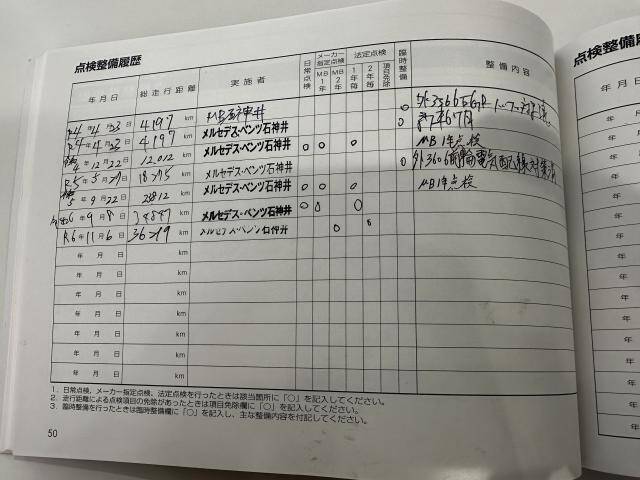 点検整備履歴
点検整備履
年月日
総走行距離
実施者
日常点検
メーカー指定点検
MB1年
MB2年
法定点検
1年毎
2年毎
項目免除
臨時整備
整備内容
年月日
R4年4月23日 4197 km MB石神井 ○
R4年4月23日 4197 km メルセデス・ベンツ石神井 ○
4年12月22日 12012 km メルセデス・ベンツ石神井 ○ ○ ○ MB 1年点検
R5年5月27日 18275 km メルセデス・ベンツ石神井 ○
5年9月22日 km メルセデス・ベンツ石神井 ○ ○ ○ MB1年点検
6年9月8日 km メルセデス・ベンツ石神井 ○ ○ ○
R6年11月6日 36219 km メルセデス・ベンツ石神井 ○ 8
年 月 日 km
年 月 日 km
年 月 日 km
年 月 日 km
年 月 日 km
年 月 日 km
年 月 日 km
1. 日常点検、メーカー指定点検、法定点検を行ったときは該当箇所に「○」を記入してください。
2. 走行距離による点検項目の免除があったときは項目免除欄に「○」を記入してください。
3. 臨時整備を行ったときは臨時整備欄に「○」を記入し、主な整備内容を付記してください。
50